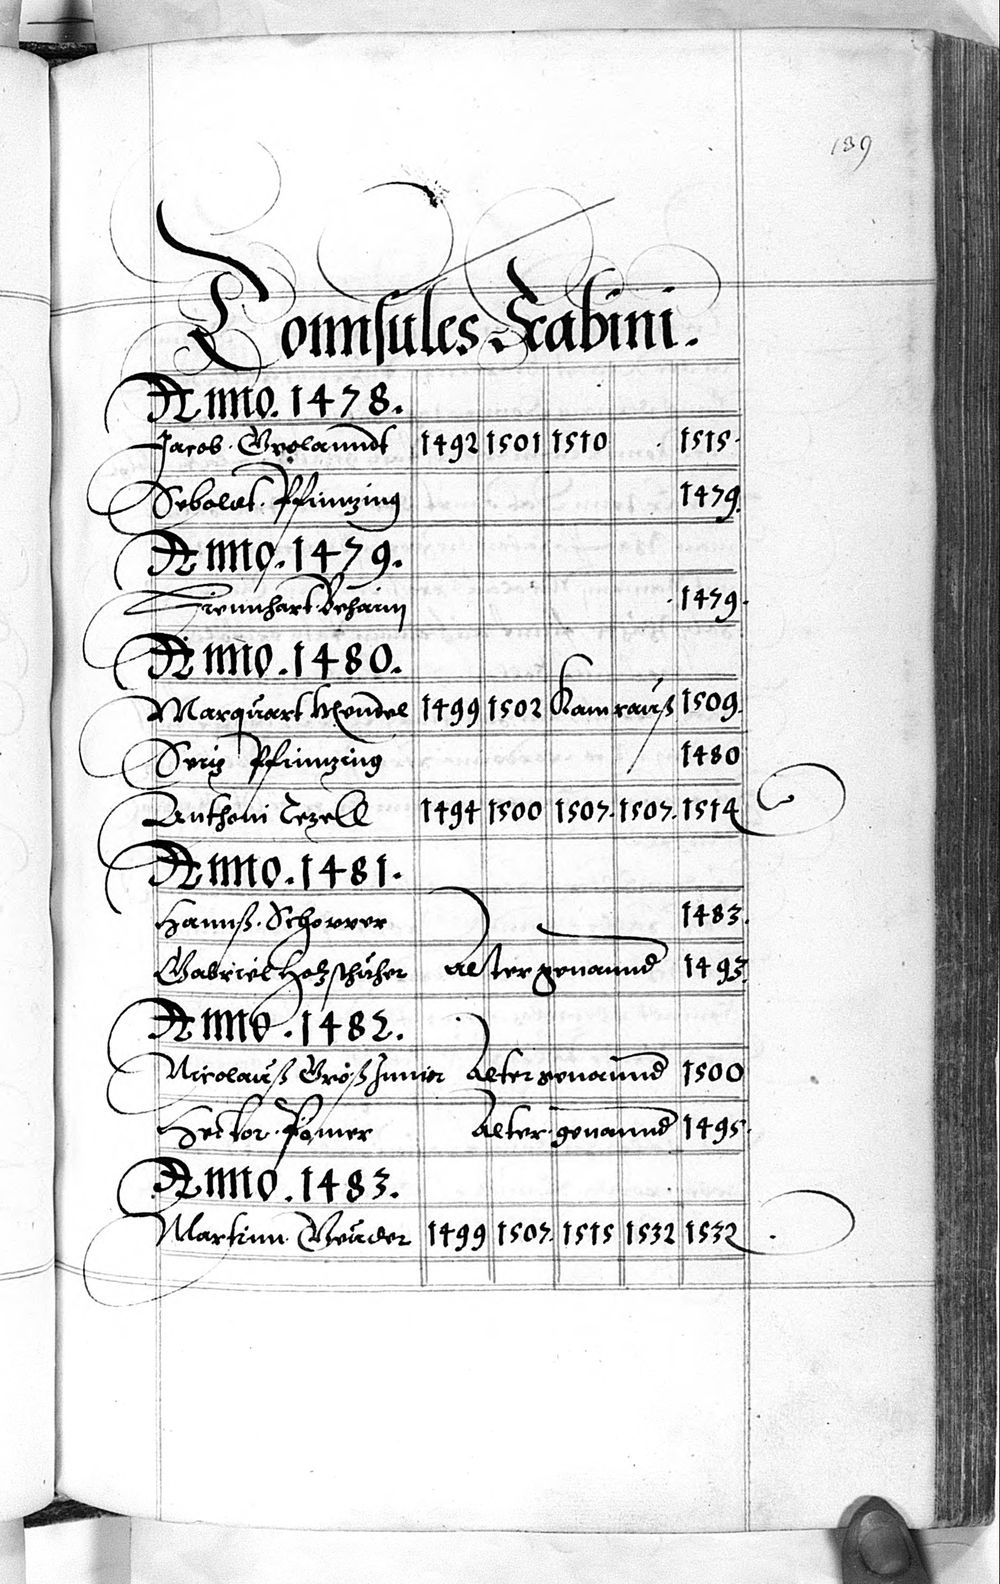 189
Connsules Scabini.
Anno. 1478.
Jacob. Grolanndt 1492 1501 1510 1515.
Seboldt. Pfinnzing 1479.
Anno. 1479.
Liennhart Behaim 1479.
Anno. 1480.
Marquart Mendel 1499 1502 Kam rauß 1509.
Seitz Pfinnzing 1480
Anthoni Tezell 1494 1500 1507. 1507. 1514
Anno. 1481.
Hannß. Schovver 1483.
Gabriel Holzschuher Alter genannd 1493.
Anno. 1482.
Nicolauß Groß Junior Alter genannd 1500
Hector. Pömer Alter. genannd 1495.
Anno. 1483.
Martinn. Geuder 1499 1507. 1515 1532 1532